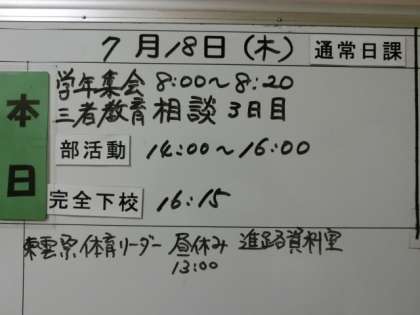 7月18日(木) 通常日課
本日
学年集会 8:00～8:20
三者教育相談 3日目
部活動 14:00～16:00
完全下校 16:15
東雲祭体育リーダー 昼休み 進路資料室
13:00